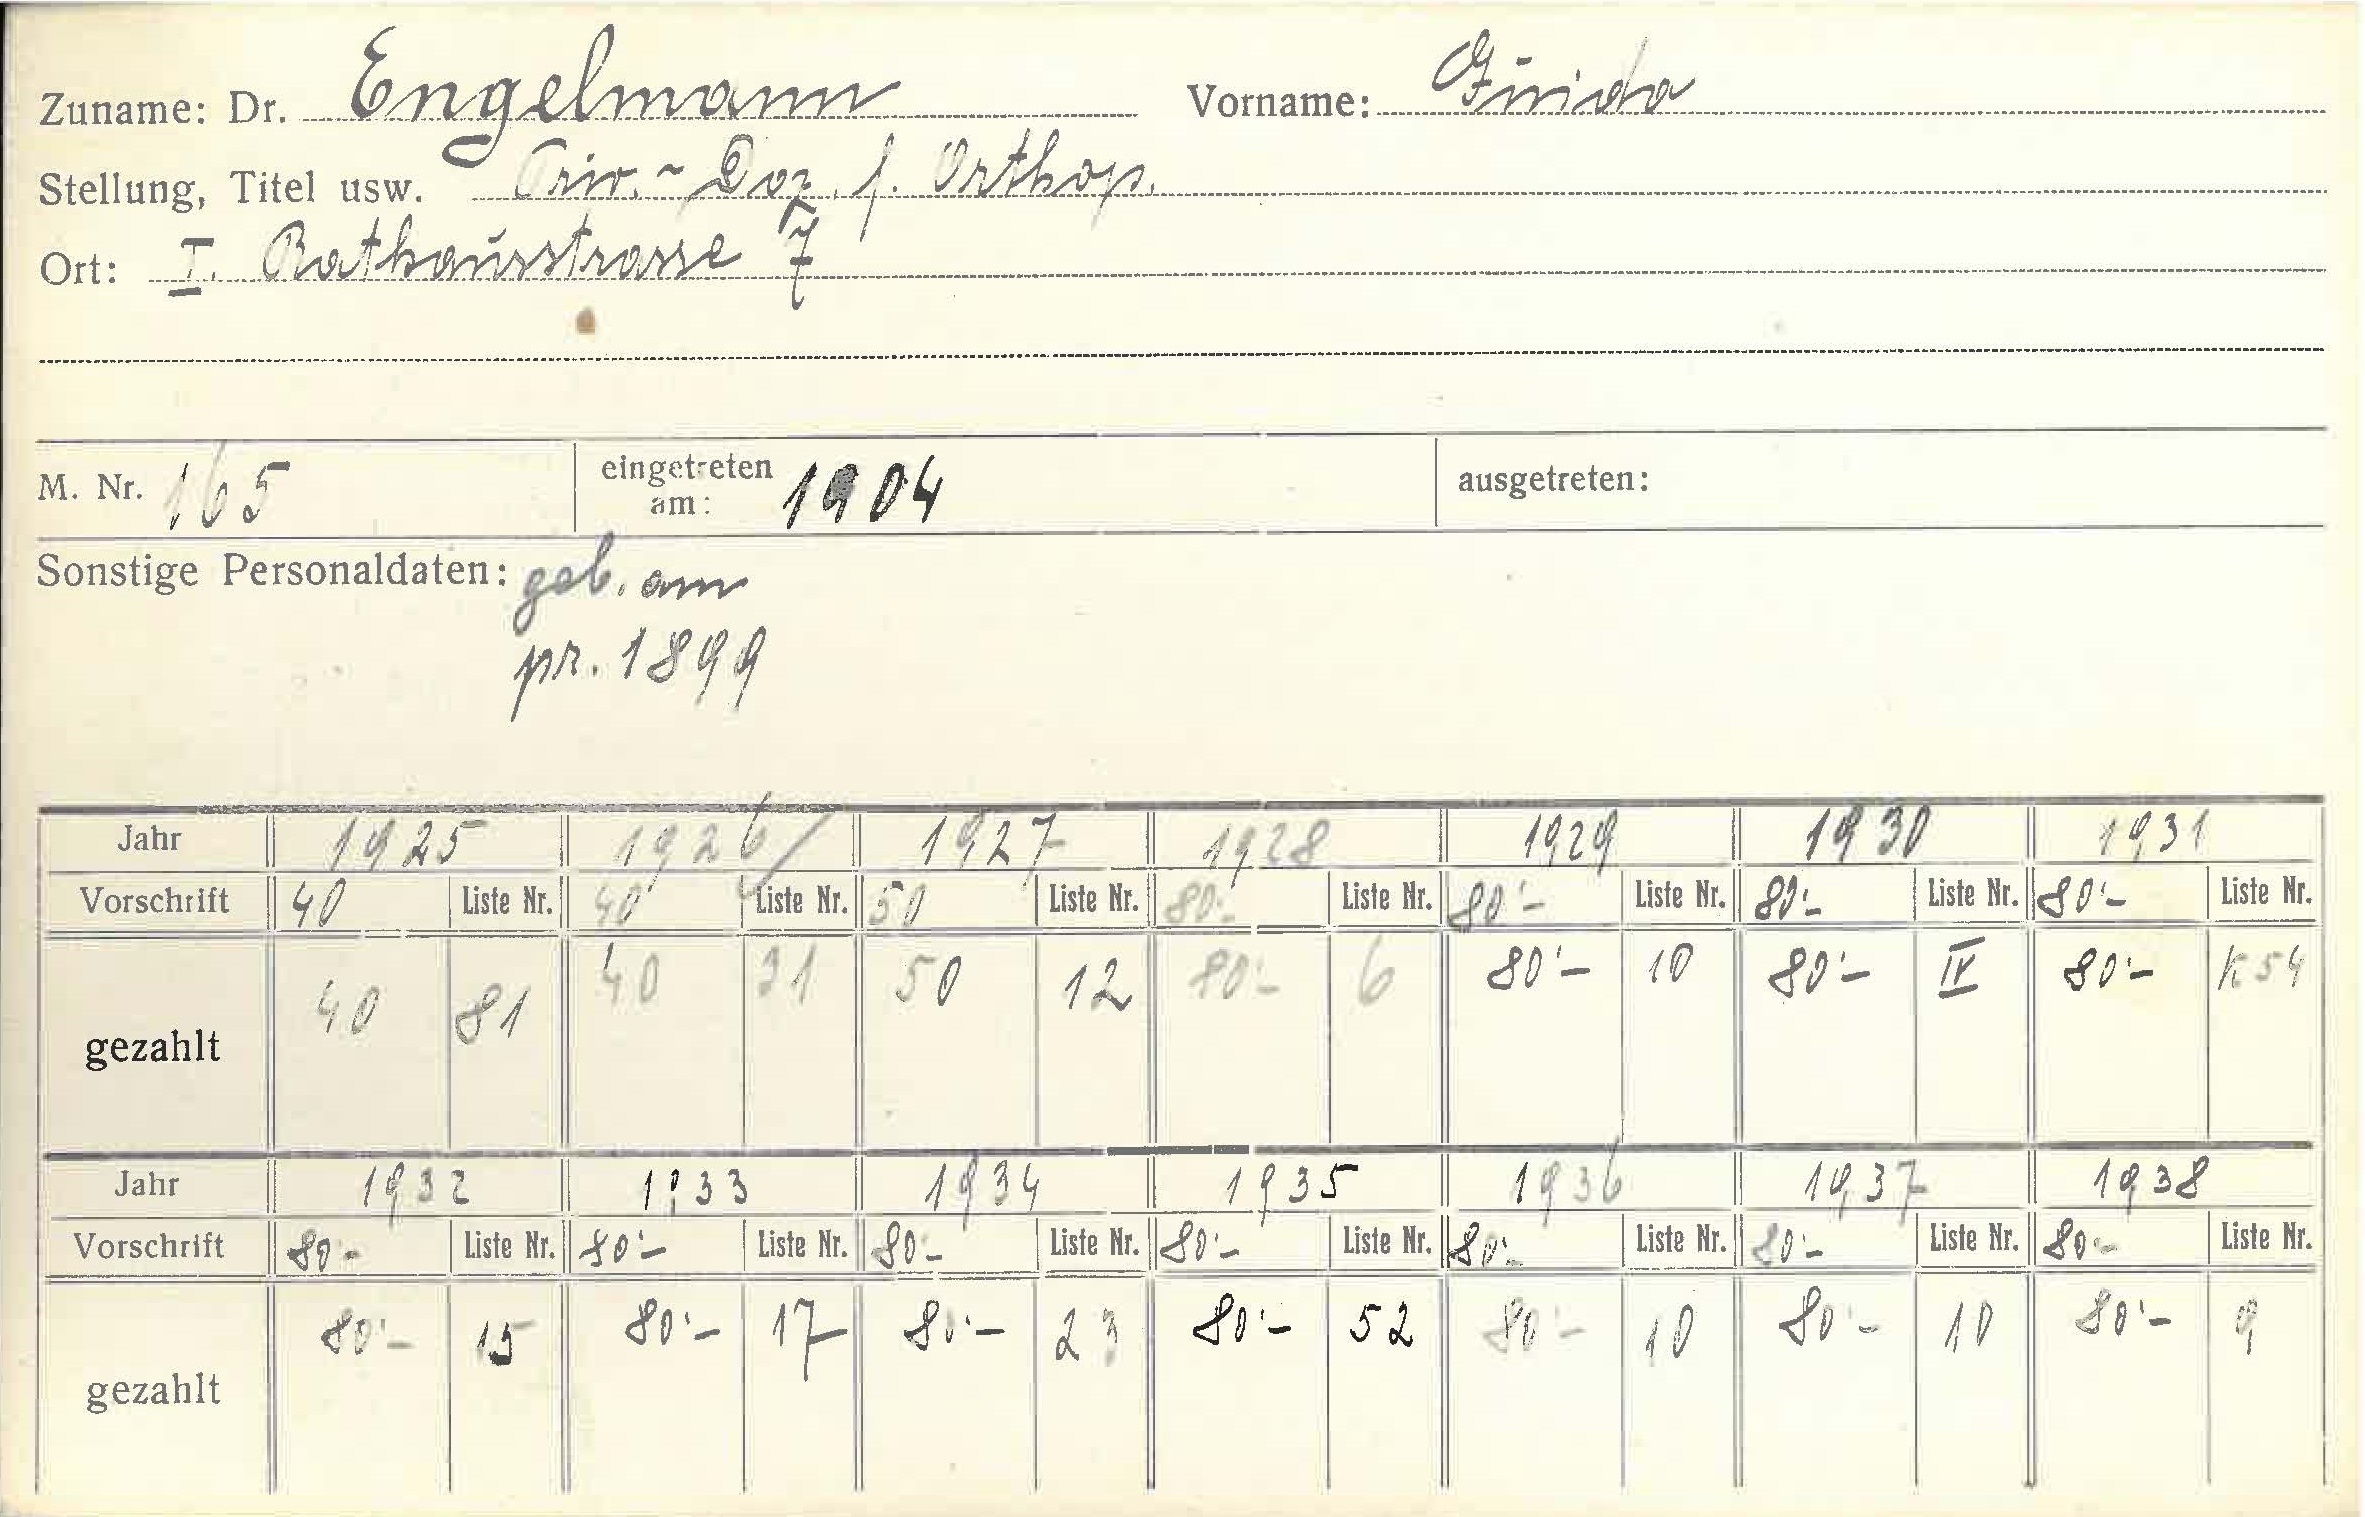 Zuname: Dr. Engelmann Vorname: Guido
Stellung, Titel usw. Priv.-Doz. f. Orthop.
Ort: I. Rathausstrasse 7
M. Nr. 165 eingetreten am: 1904 ausgetreten:
Sonstige Personaldaten: geb. am
pr. 1899
Jahr 1925 1926 1927 1928 1929 1930 1931
Vorschrift 40 Liste Nr. 40 Liste Nr. 50 Liste Nr. 80·- Liste Nr. 80·- Liste Nr. 80·- Liste Nr. 80·- Liste Nr.
gezahlt 40 81 40 31 50 12 80·- 6 80·- 10 80·- IV 80·- K 54
Jahr 1932 1933 1934 1935 1936 1937 1938
Vorschrift 80·- Liste Nr. 80·- Liste Nr. 80·- Liste Nr. 80·- Liste Nr. 80·- Liste Nr. 80·- Liste Nr. 80·- Liste Nr.
gezahlt 80·- 15 80·- 17 80·- 23 80·- 52 80·- 10 80·- 10 80·- 9